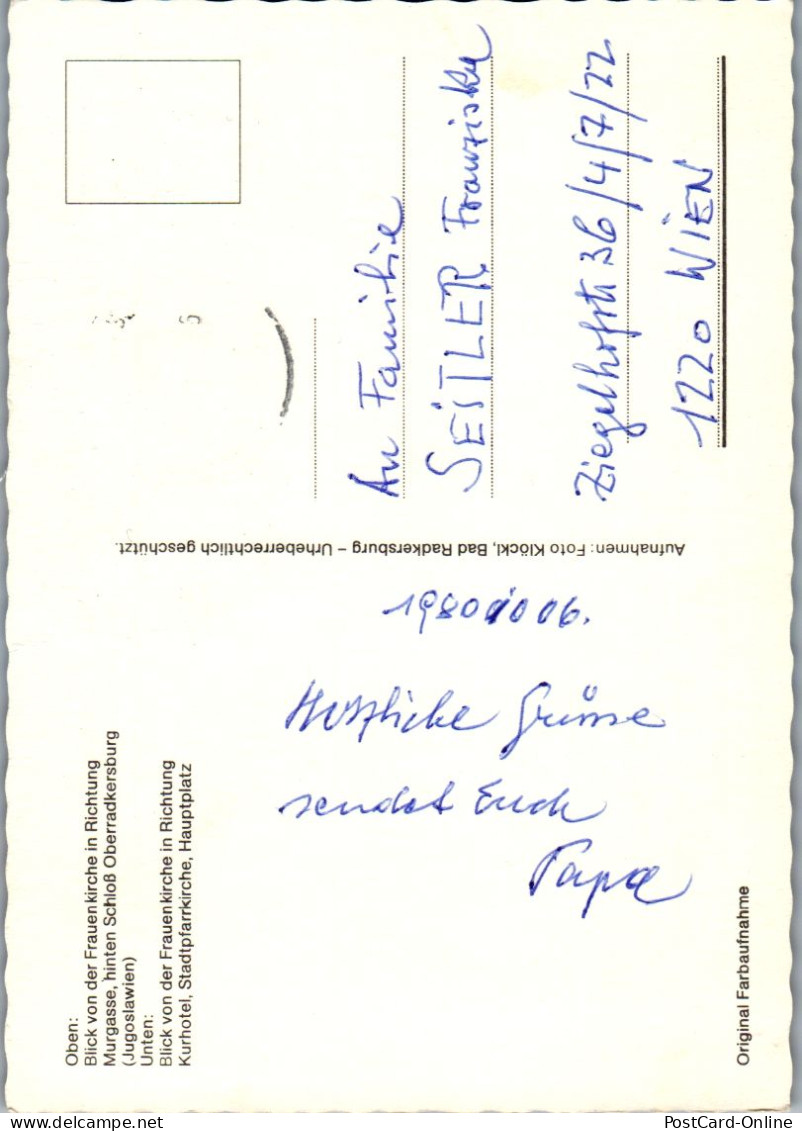 Oben:
Blick von der Frauenkirche in Richtung
Murgasse, hinten Schloß Oberradkersburg
(Jugoslawien)
Unten:
Blick von der Frauenkirche in Richtung
Kurhotel, Stadtpfarrkirche, Hauptplatz
19801006.
Herzliche Grüsse
sendet Euch
Papa
Original Farbaufnahme
Aufnahmen: Foto Klöckl, Bad Radkersburg – Urheberrechtlich geschützt.
An Familie
SEITLER Franziska
Ziegelhofstr 36/4/7/22
1220 WIEN
PostCard-Online